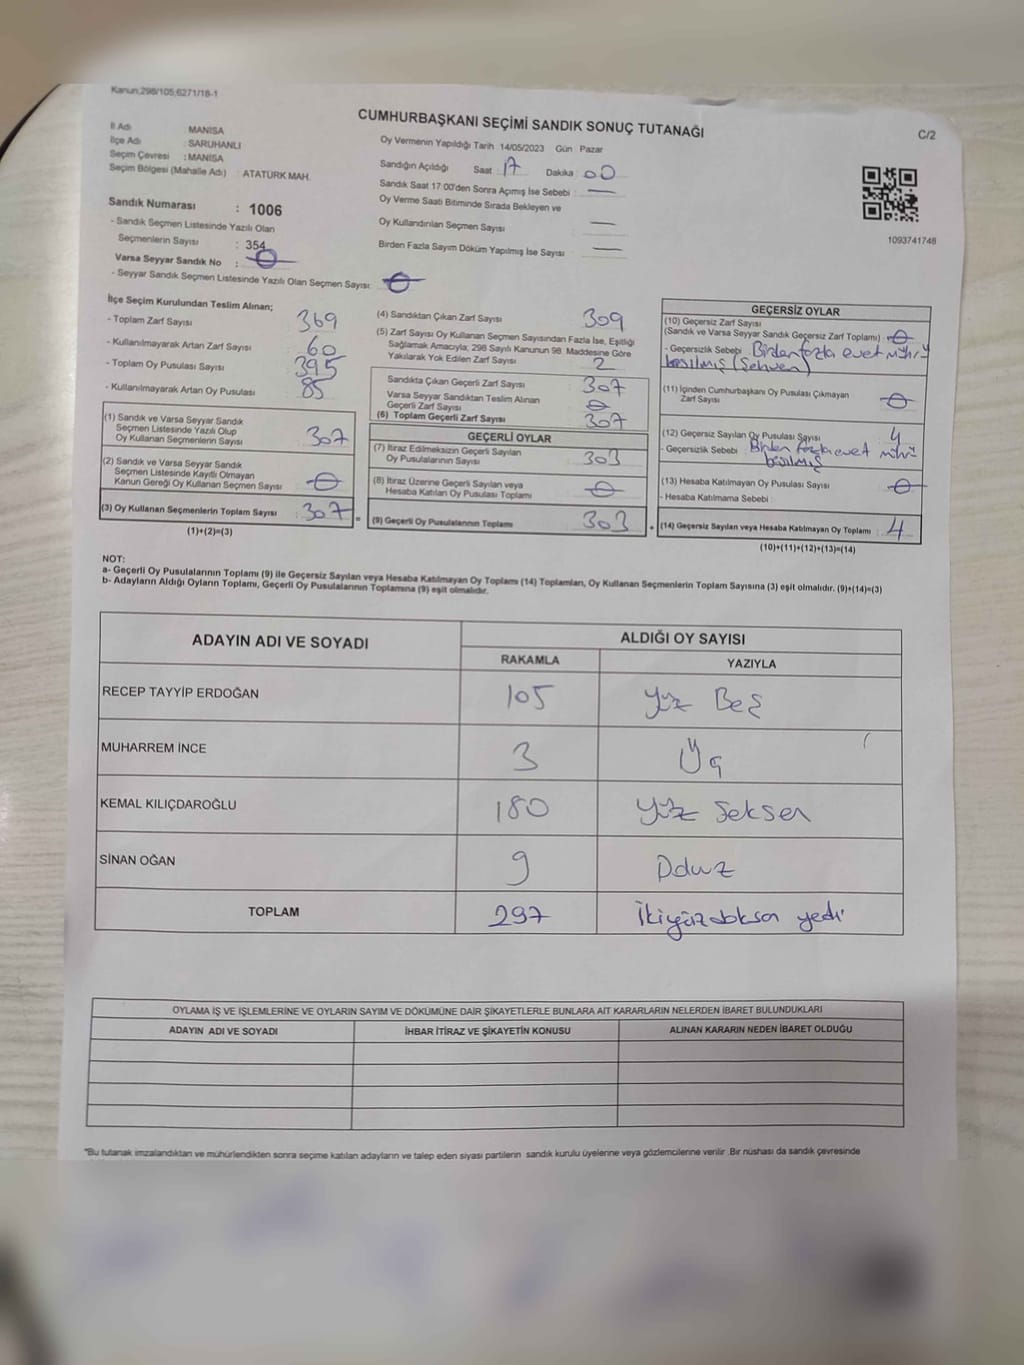 Kanun;298/105;6271/18-1
CUMHURBAŞKANI SEÇİMİ SANDIK SONUÇ TUTANAĞI
C/2
İl Adı : MANİSA
İlçe Adı : SARUHANLI
Seçim Çevresi : MANİSA
Seçim Bölgesi (Mahalle Adı) : ATATÜRK MAH.
Sandık Numarası : 1006
- Sandık Seçmen Listesinde Yazılı Olan
Seçmenlerin Sayısı : 354
Varsa Seyyar Sandık No : 0
- Seyyar Sandık Seçmen Listesinde Yazılı Olan Seçmen Sayısı: 0
Oy Vermenin Yapıldığı Tarih 14/05/2023 Gün Pazar
Sandığın Açıldığı Saat : 17 Dakika : 00
Sandık Saat 17:00'den Sonra Açmış İse Sebebi : —
Oy Verme Saati Bitiminde Sırada Bekleyen ve
Oy Kullandırılan Seçmen Sayısı : —
Birden Fazla Sayım Döküm Yapılmış İse Sayısı : —
1093741748
İlçe Seçim Kurulundan Teslim Alınan;
- Toplam Zarf Sayısı : 369
- Kullanılmayarak Artan Zarf Sayısı : 60
- Toplam Oy Pusulası Sayısı : 395
- Kullanılmayarak Artan Oy Pusulası : 85
(1) Sandık ve Varsa Seyyar
Sandık Seçmen Listesinde Yazılı Olup
Oy Kullanan Seçmenlerin Sayısı : 307
(2) Sandık ve Varsa Seyyar Sandık
Seçmen Listesinde Kayıtlı Olmayan
Kanun Gereği Oy Kullanan Seçmen Sayısı : 0
(3) Oy Kullanan Seçmenlerin Toplam Sayısı : 307
(1)+(2)=(3)
(4) Sandıktan Çıkan Zarf Sayısı : 309
(5) Zarf Sayısı Oy Kullanan Seçmen Sayısından Fazla İse, Eşitliği
Sağlamak Amacıyla, 298 Sayılı Kanunun 98. Maddesine Göre
Yakılarak Yok Edilen Zarf Sayısı : 2
Sandıkta Çıkan Geçerli Zarf Sayısı : 307
Varsa Seyyar Sandıktan Teslim Alınan
Geçerli Zarf Sayısı : 0
(6) Toplam Geçerli Zarf Sayısı : 307
GEÇERLİ OYLAR
(7) İtiraz Edilmeksizin Geçerli Sayılan
Oy Pusulalarının Sayısı : 303
(8) İtiraz Üzerine Geçerli Sayılan veya
Hesaba Katılan Oy Pusulası Toplamı : 0
(9) Geçerli Oy Pusulalarının Toplamı : 303
GEÇERSİZ OYLAR
(10) Geçersiz Zarf Sayısı
(Sandık ve Varsa Seyyar Sandık Geçersiz Zarf Toplamı) : 0
- Geçersizlik Sebebi : Birden fazla evet mührü
basılmış (Sehven)
(11) İçinden Cumhurbaşkanı Oy Pusulası Çıkmayan
Zarf Sayısı : 0
(12) Geçersiz Sayılan Oy Pusulası Sayısı : 4
- Geçersizlik Sebebi : Birden fazla evet mührü
basılmış
(13) Hesaba Katılmayan Oy Pusulası Sayısı : 0
- Hesaba Katılmama Sebebi :
(14) Geçersiz Sayılan veya Hesaba Katılmayan Oy Toplamı : 4
(10)+(11)+(12)+(13)=(14)
NOT:
a- Geçerli Oy Pusulalarının Toplamı (9) ile Geçersiz Sayılan veya Hesaba Katılmayan Oy Toplamı (14) Toplamları, Oy Kullanan Seçmenlerin Toplam Sayısına (3) eşit olmalıdır. (9)+(14)=(3)
b- Adayların Aldığı Oyların Toplamı, Geçerli Oy Pusulalarının Toplamına (9) eşit olmalıdır.
ADAYIN ADI VE SOYADI
ALDIĞI OY SAYISI
RAKAMLA YAZIYLA
RECEP TAYYİP ERDOĞAN 105 Yüz Beş
MUHARREM İNCE 3 Üç
KEMAL KILIÇDAROĞLU 180 Yüz Seksen
SİNAN OĞAN 9 Dokuz
TOPLAM 297 İkiyüzdoksan yedi
OYLAMA İŞ VE İŞLEMLERİNE VE OYLARIN SAYIM VE DÖKÜMÜNE DAİR ŞİKAYETLERLE BUNLARA AİT KARARLARIN NELERDEN İBARET BULUNDUKLARI
ADAYIN ADI VE SOYADI İHBAR İTİRAZ VE ŞİKAYETİN KONUSU ALINAN KARARIN NEDEN İBARET OLDUĞU
*Bu tutanak imzalandıktan ve mühürlendikten sonra seçime katılan adayların ve talep eden siyasi partilerin sandık kurulu üyelerine veya gözlemcilerine verilir. Bir nüshası da sandık çevresinde